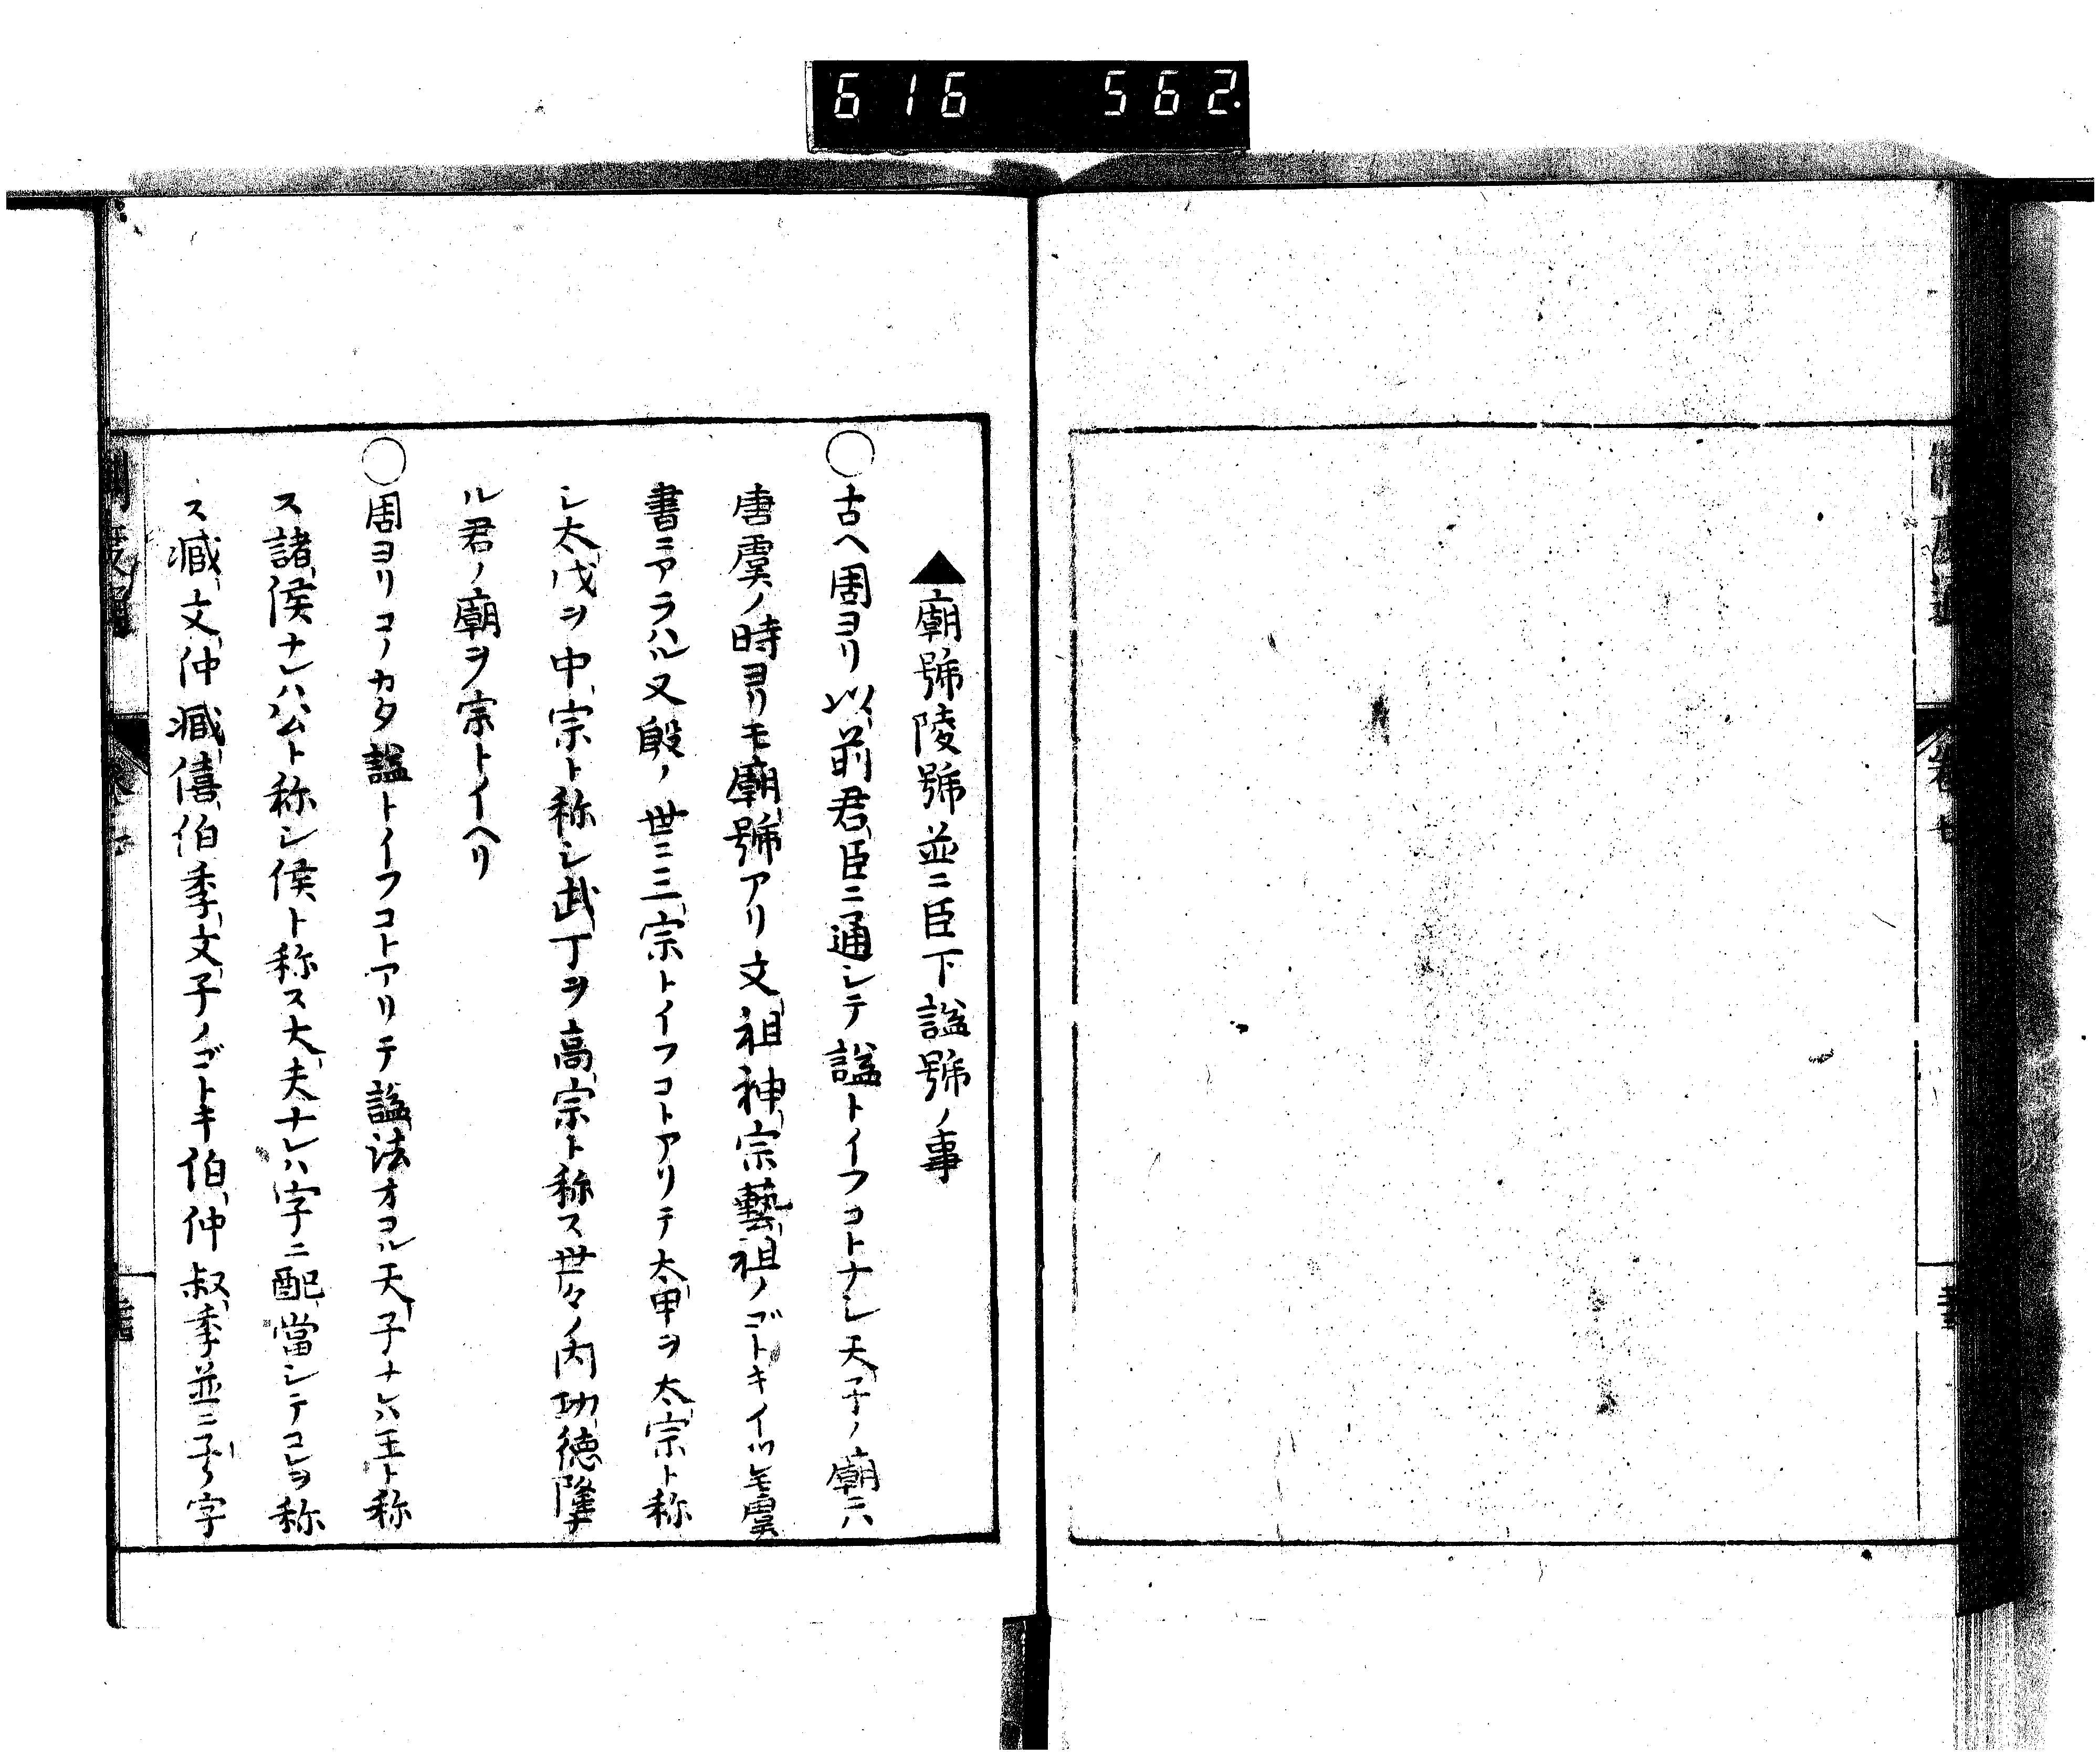 616 562
▲廟號陵號並ニ臣下諡號ノ事
○古ヘ周ヨリ以前君臣ニ通シテ諡トイフコトナシ天子ノ廟ニハ
唐虞ノ時ヨリモ廟號アリ文祖神宗藝祖ノゴトキイツレモ虞
書ニアラハル又殷ノ世ニ三宗トイフコトアリテ太甲ヲ太宗ト称
シ太戊ヲ中宗ト称シ武丁ヲ高宗ト称ス世々ノ内功徳隆ナ
ル君ノ廟ヲ宗トイヘリ
○周ヨリコノカタ諡トイフコトアリテ諡法オコル天子ナレハ王ト称
ス諸侯ナレハ公ト称シ侯ト称ス大夫ナレハ字ニ配當シテコレヲ称
ス臧文仲臧僖伯季文子ノゴトキ伯仲叔季並ニ子ノ字